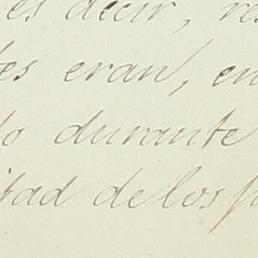 es decir, res
es eran, en
o durante
itad de los p